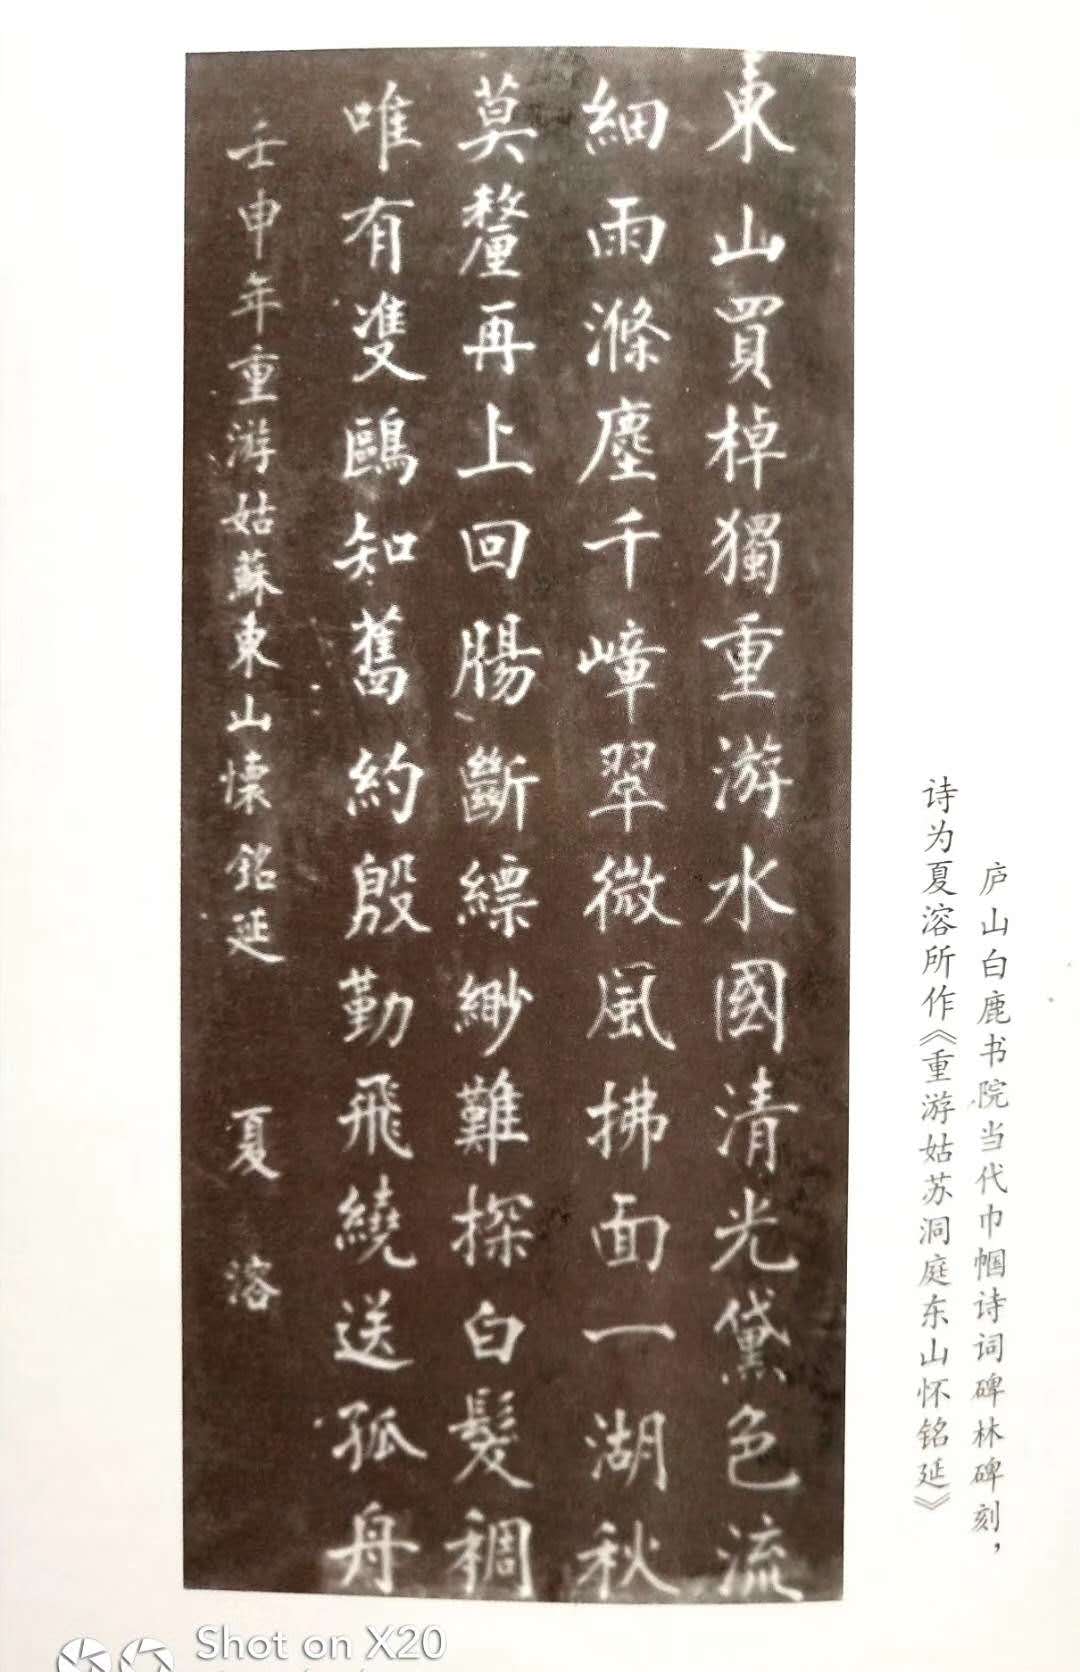 庐山白鹿书院当代巾帼诗词碑林碑刻，
诗为夏溶所作《重游姑苏洞庭东山怀铭延》
東山買棹獨重游水國清光黛色流
細雨滌塵千嶂翠微風拂面一湖秋
莫釐再上回腸斷縹緲難探白髮稠
唯有雙鷗知舊約殷勤飛繞送孤舟
壬申年重游姑蘇東山懷銘延 夏溶
Shot on X20